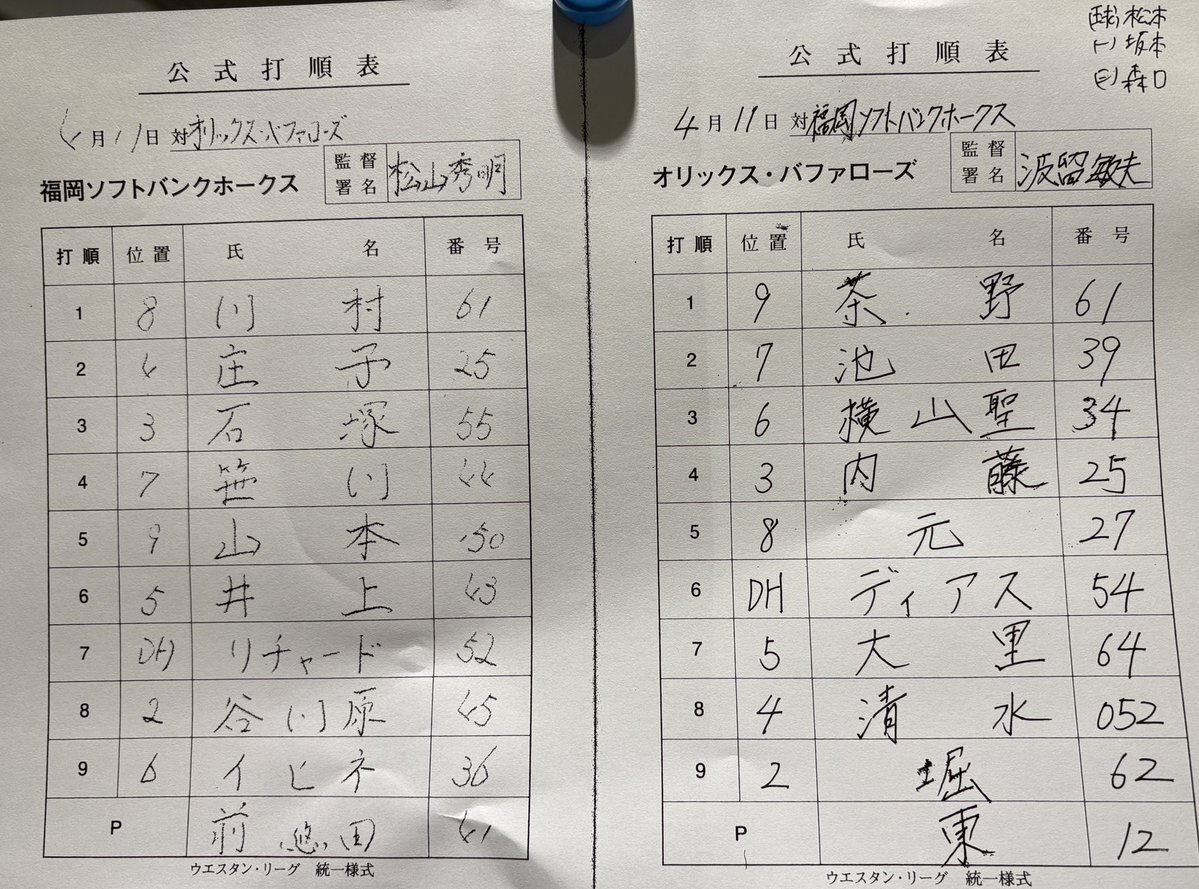 公式打順表
4月11日 対オリックス・バファローズ
福岡ソフトバンクホークス
監督署名 松山秀明
打順 位置 氏名 番号
1 8 川村 61
2 4 庄子 25
3 3 石塚 55
4 7 笹川 44
5 9 山本 50
6 5 井上 43
7 DH リチャード 52
8 2 谷川原 45
9 6 イヒネ 36
P 前田悠 41
ウエスタン・リーグ 統一様式
(球)松本
(一)坂本
(三)森口
公式打順表
4月11日 対福岡ソフトバンクホークス
オリックス・バファローズ
監督署名 波留敏夫
打順 位置 氏名 番号
1 9 茶野 61
2 7 池田 39
3 6 横山聖 34
4 3 内藤 25
5 8 元 27
6 DH ディアス 54
7 5 大里 64
8 4 清水 052
9 2 堀 62
P 東 12
ウエスタン・リーグ 統一様式